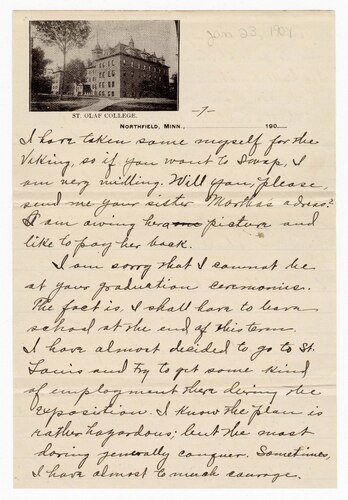 ST. OLAF COLLEGE.
-7-
NORTHFIELD, MINN., 190
I have taken some myself for the
Viking, so if you want to swap, I
am very willing. Will you, please,
send me your sister Martha's adress?
I am owing her a picture and
like to pay her back.
I am sorry that I cannot be
at your graduation ceremonies.
The fact is, I shall have to leave
school at the end of this term.
I have almost decided to go to St.
Louis and try to get some kind
of employment there during the
exposition. I know the plan is
rather hazardous; but the most
daring generally conquer. Sometimes,
I have almost to much courage.